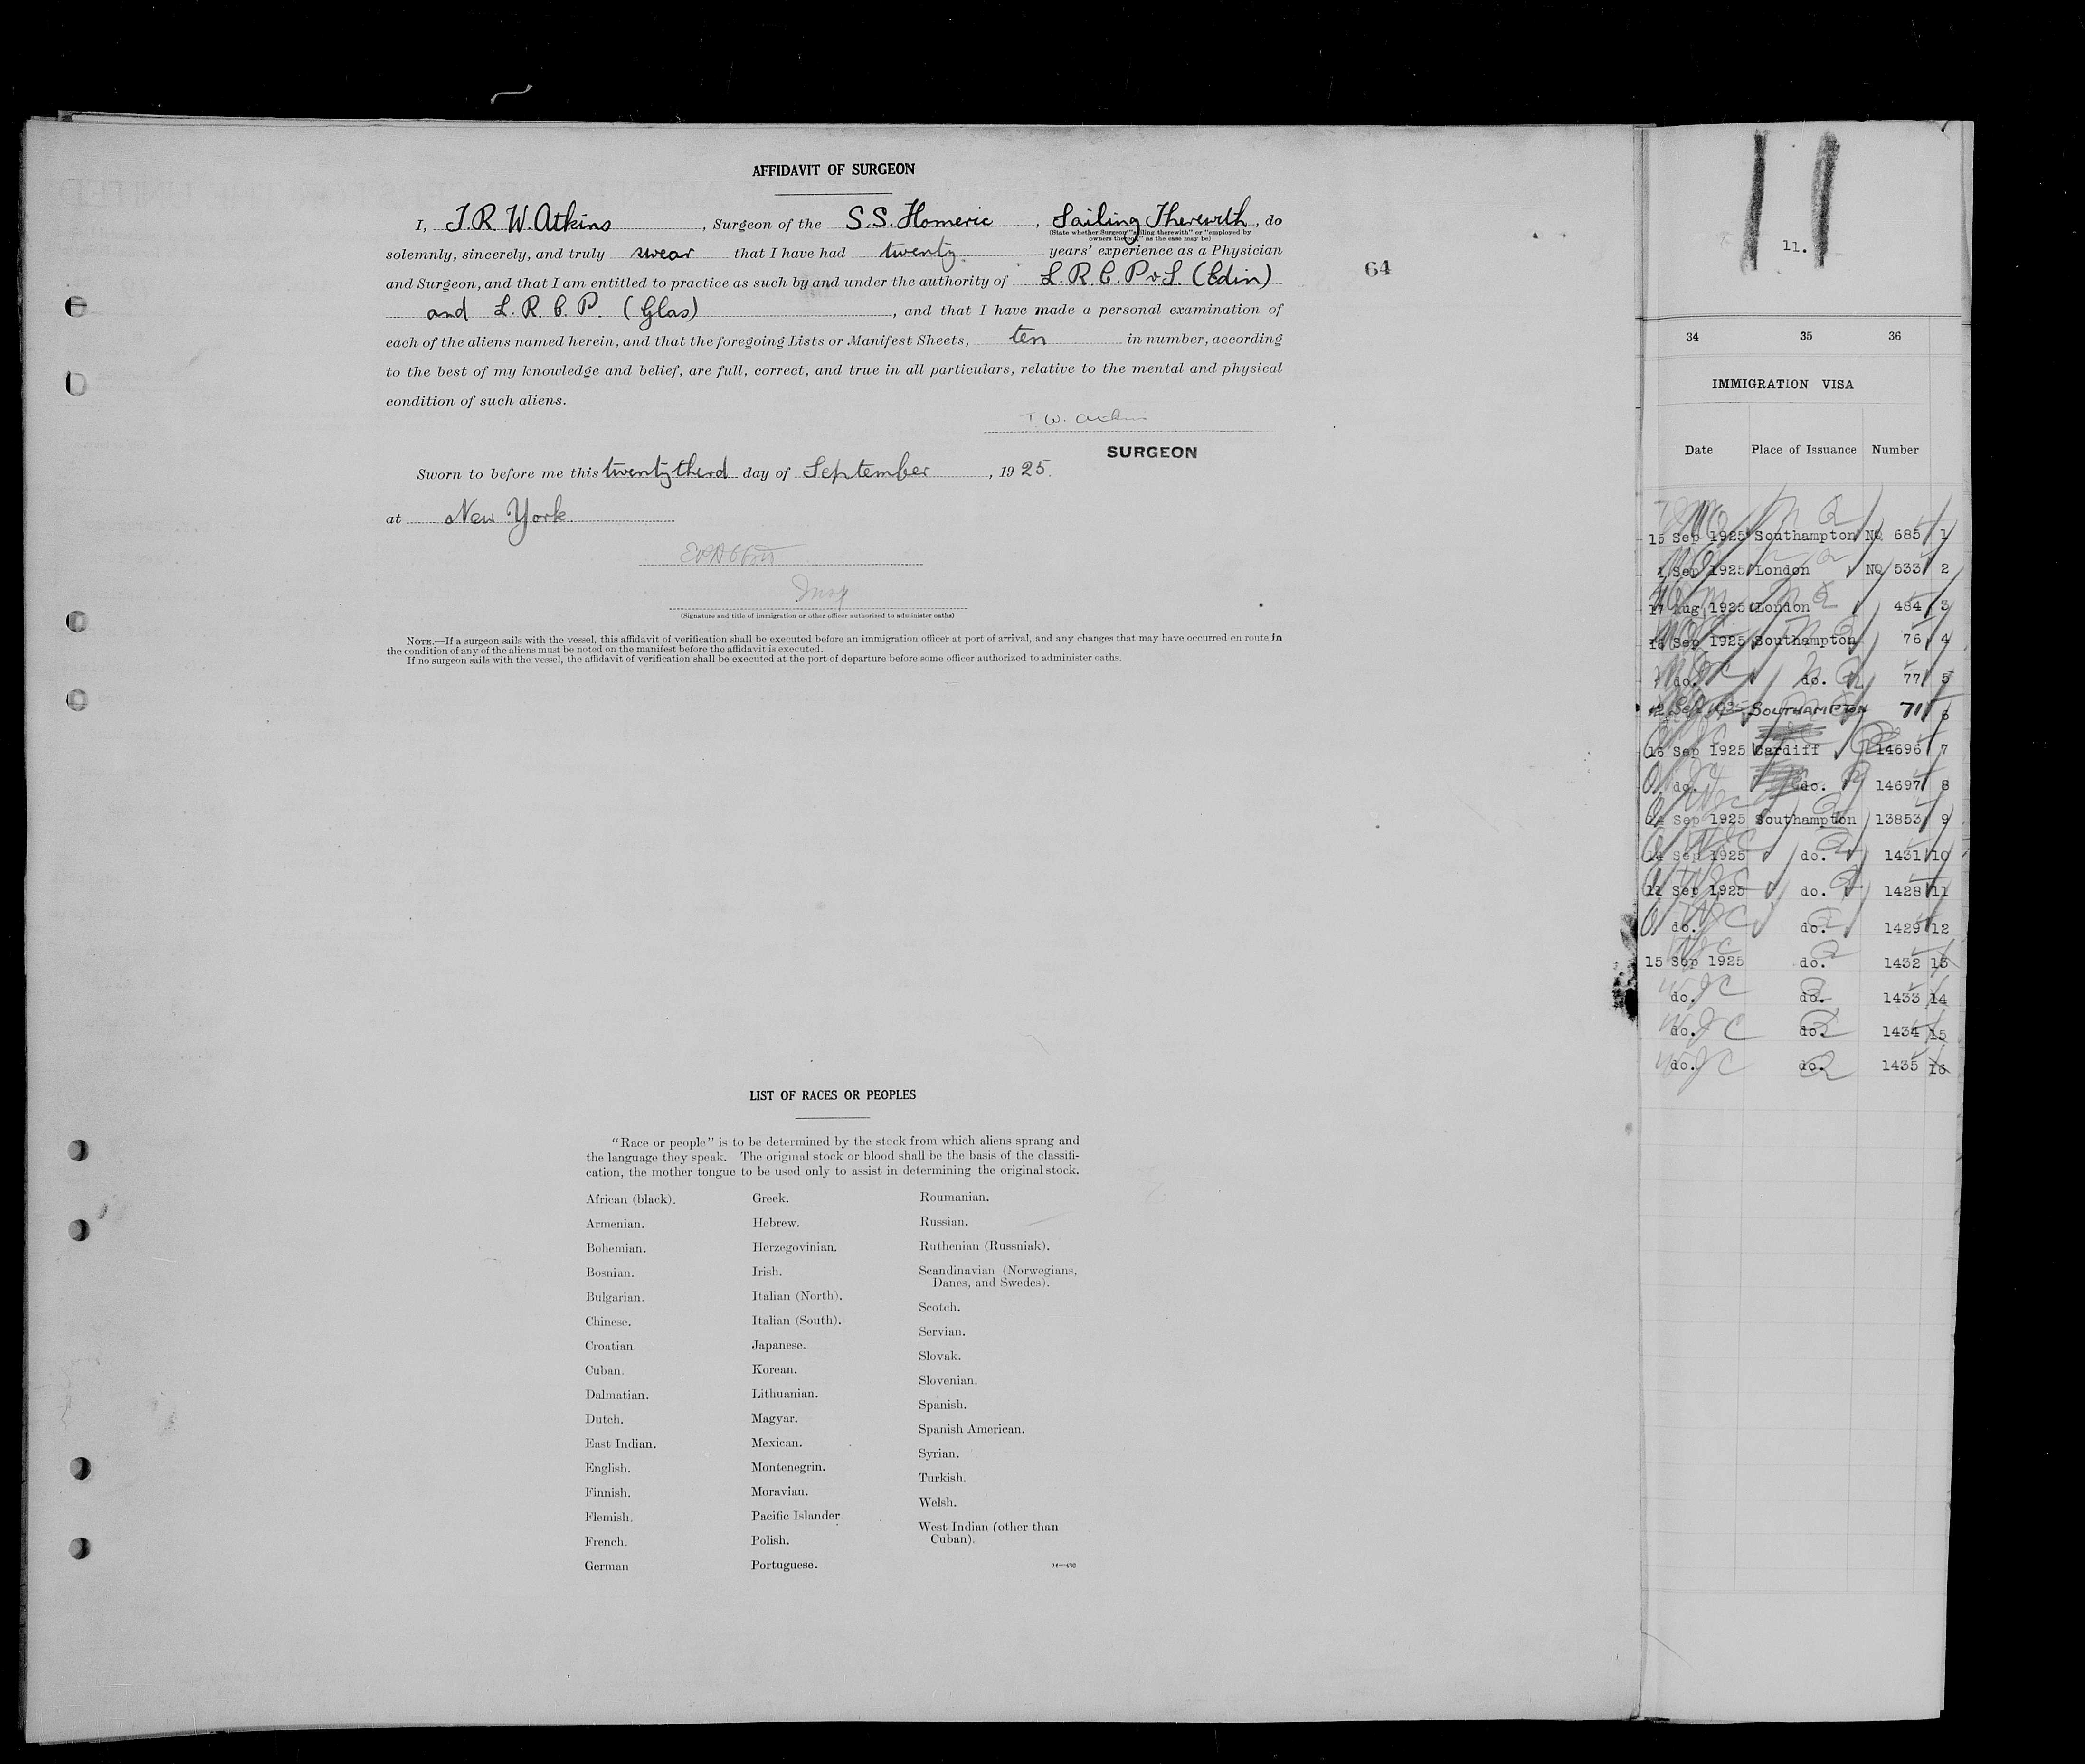 AFFIDAVIT OF SURGEON
I, T. R. W. Atkins, Surgeon of the S.S. Homeric, Sailing Therewith, do
(State whether Surgeon "sailing therewith" or "employed by
owners thereof," as the case may be)
solemnly, sincerely, and truly swear that I have had twenty years' experience as a Physician
and Surgeon, and that I am entitled to practice as such by and under the authority of L. R. C. P & S. (Edin)
and L. R. C. P. (Glas), and that I have made a personal examination of
each of the aliens named herein, and that the foregoing Lists or Manifest Sheets, ten in number, according
to the best of my knowledge and belief, are full, correct, and true in all particulars, relative to the mental and physical
condition of such aliens.
W. Atkins
SURGEON
Sworn to before me this twenty third day of September, 1925.
at New York
Insp
(Signature and title of immigration or other officer authorized to administer oaths)
NOTE.—If a surgeon sails with the vessel, this affidavit of verification shall be executed before an immigration officer at port of arrival, and any changes that may have occurred en route in
the condition of any of the aliens must be noted on the manifest before the affidavit is executed.
If no surgeon sails with the vessel, the affidavit of verification shall be executed at the port of departure before some officer authorized to administer oaths.
64
LIST OF RACES OR PEOPLES
"Race or people" is to be determined by the stock from which aliens sprang and
the language they speak. The original stock or blood shall be the basis of the classifi-
cation, the mother tongue to be used only to assist in determining the original stock.
African (black).
Armenian.
Bohemian.
Bosnian.
Bulgarian.
Chinese.
Croatian.
Cuban.
Dalmatian.
Dutch.
East Indian.
English.
Finnish.
Flemish.
French.
German
Greek.
Hebrew.
Herzegovinian.
Irish.
Italian (North).
Italian (South).
Japanese.
Korean.
Lithuanian.
Magyar.
Mexican.
Montenegrin.
Moravian.
Pacific Islander
Polish.
Portuguese.
Roumanian.
Russian.
Ruthenian (Russniak).
Scandinavian (Norwegians,
Danes, and Swedes).
Scotch.
Servian.
Slovak.
Slovenian.
Spanish.
Spanish American.
Syrian.
Turkish.
Welsh.
West Indian (other than
Cuban).
11
11.
34 35 36
IMMIGRATION VISA
Date Place of Issuance Number
15 Sep 1925 Southampton NQ 685 1
Sep 1925 London NQ 533 2
17 Aug 1925 London 484 3
16 Sep 1925 Southampton 76 4
do. do. 77 5
12 Sep 1925 SOUTHAMPTON 71 6
16 Sep 1925 Cardiff 14696 7
do. do. 14697 8
Sep 1925 Southampton 13853 9
14 Sep 1925 do. 1431 10
11 Sep 1925 do. 1428 11
do. do. 1429 12
15 Sep 1925 do. 1432 13
do. do. 1433 14
do. do. 1434 15
do. do. 1435 16